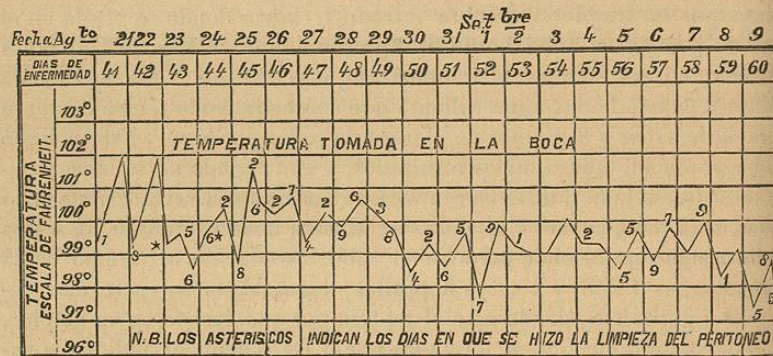 Setbre
Fecha Agto 21 22 23 24 25 26 27 28 29 30 31 1 2 3 4 5 6 7 8 9
DIAS DE ENFERMEDAD 41 42 43 44 45 46 47 48 49 50 51 52 53 54 55 56 57 58 59 60
TEMPERATURA
ESCALA DE FAHRENHEIT.
103°
TEMPERATURA TOMADA EN LA BOCA
102°
101°
100°
99°
98°
97°
96°
1 8 * 5 6 6* 2 8 2 6 2 7 4 2 9 6 3 8 4 2 6 5 7 9 1 2 5 5 9 7 9 1 5 8 5
N.B. LOS ASTERISCOS INDICAN LOS DIAS EN QUE SE HIZO LA LIMPIEZA DEL PERITONEO